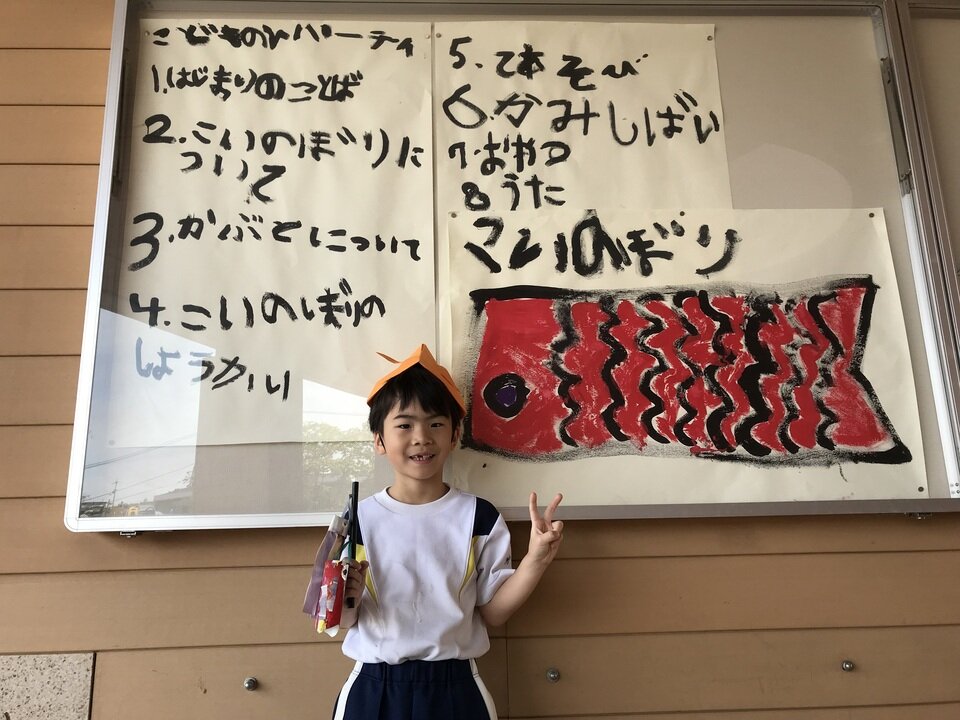 こどものひパーティ
1.はじまりのことば
2.こいのぼりに
ついて
3.かぶとについて
4.こいのぼりの
しょうかい
5.てあそび
6.かみしばい
7.おやつ
8うた
こいのぼり